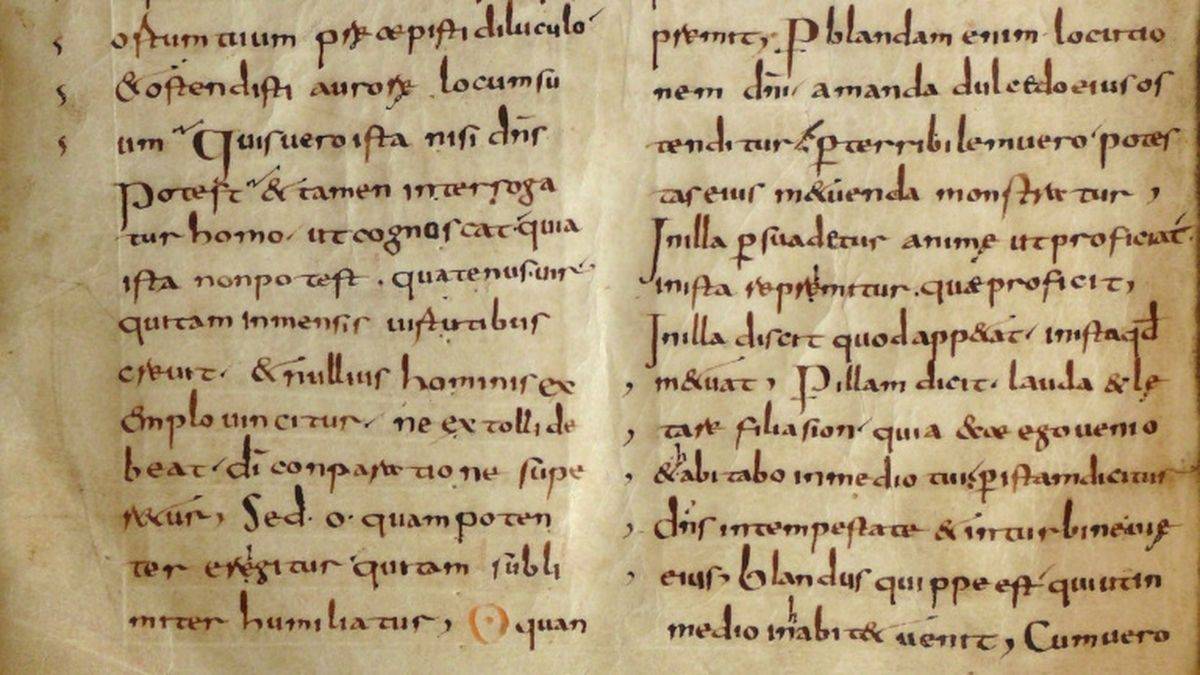 ostum tuum præcepisti diluculo
& ostendisti auroræ locum su
um Quis vero ista nisi dn̄s
Potest & tamen interroga
tur homo. ut cognoscat quia
ista non potest. quatenus vir
qui tam inmensis virtutibus
crevit. & nullius hominis ex
emplo vincitur. ne extolli de
beat. dī conparatione supe
r&ur, Sed. o. quam poten
ter erigitur qui tam subli
miter humiliatur, O quan
premit, P blandam enim locutio
nem dn̄i amanda dulcedo eius os
tenditur. ꝑ terribilem vero potes
tas eius m&uenda monstratur,
In illa ꝑsuadetur animę ut proficiat
in ista reprimitur. quæ proficit,
In illa discit quod app&at. in ista qđ
m&uat, P illam dicit. lauda & lę
tare filia sion. quia ecce ego venio
& habitabo in medio tui. ꝑ istam dicitur
dn̄s in tempestate & in turbine vię
eius, blandus quippe est qui ut in
medio inhabit& venit, Cum vero